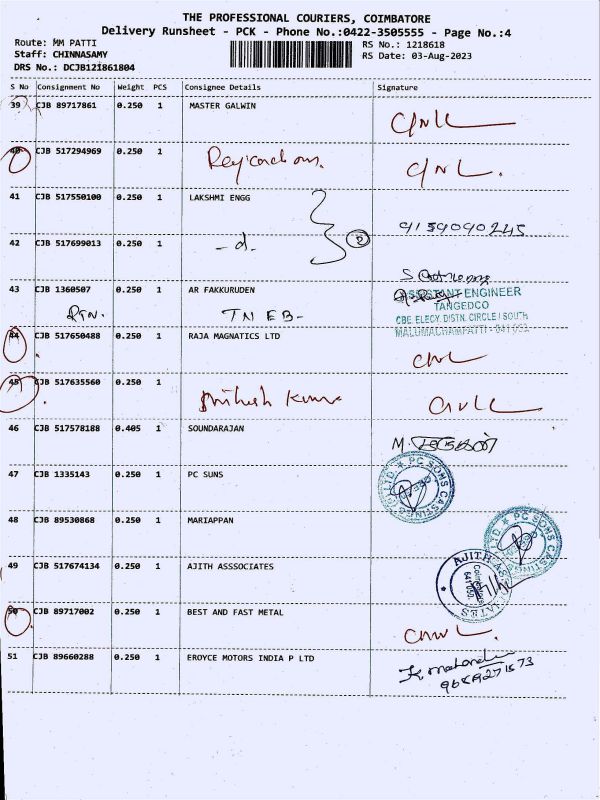 THE PROFESSIONAL COURIERS, COIMBATORE
Delivery Runsheet - PCK - Phone No.:0422-3505555 - Page No.:4
Route: MM PATTI
RS No.: 1218618
Staff: CHINNASAMY
RS Date: 03-Aug-2023
DRS No.: DCJB121861804
S No Consignment No Weight PCS Consignee Details Signature
39 CJB 89717861 0.250 1 MASTER GALWIN
40 CJB 517294969 0.250 1
41 CJB 517550100 0.250 1 LAKSHMI ENGG
9159090245
42 CJB 517699013 0.250 1 -d- 2
43 CJB 1360507 0.250 1 AR FAKKURUDEN
ASSISTANT ENGINEER
RTN. TNEB-
TANGEDCO
CBE ELECY. DISTN. CIRCLE / SOUTH
MALUMACHAMPATTI - 641 052
44 CJB 517650488 0.250 1 RAJA MAGNATICS LTD
45 CJB 517635560 0.250 1
46 CJB 517578188 0.405 1 SOUNDARAJAN
47 CJB 1335143 0.250 1 PC SUNS
PC SONS CASTINGS
48 CJB 89530868 0.250 1 MARIAPPAN
PC SONS CASTINGS
49 CJB 517674134 0.250 1 AJITH ASSSOCIATES
AJITH ASSOCIATES
50 CJB 89717002 0.250 1 BEST AND FAST METAL
51 CJB 89660288 0.250 1 EROYCE MOTORS INDIA P LTD